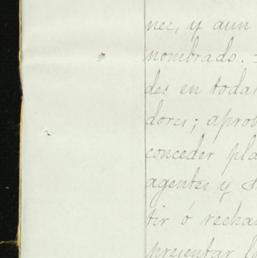 nez, y aun
nombrado.
des en toda
dores; apro
conceder pla
agentes y
tir ó recha
presentar l